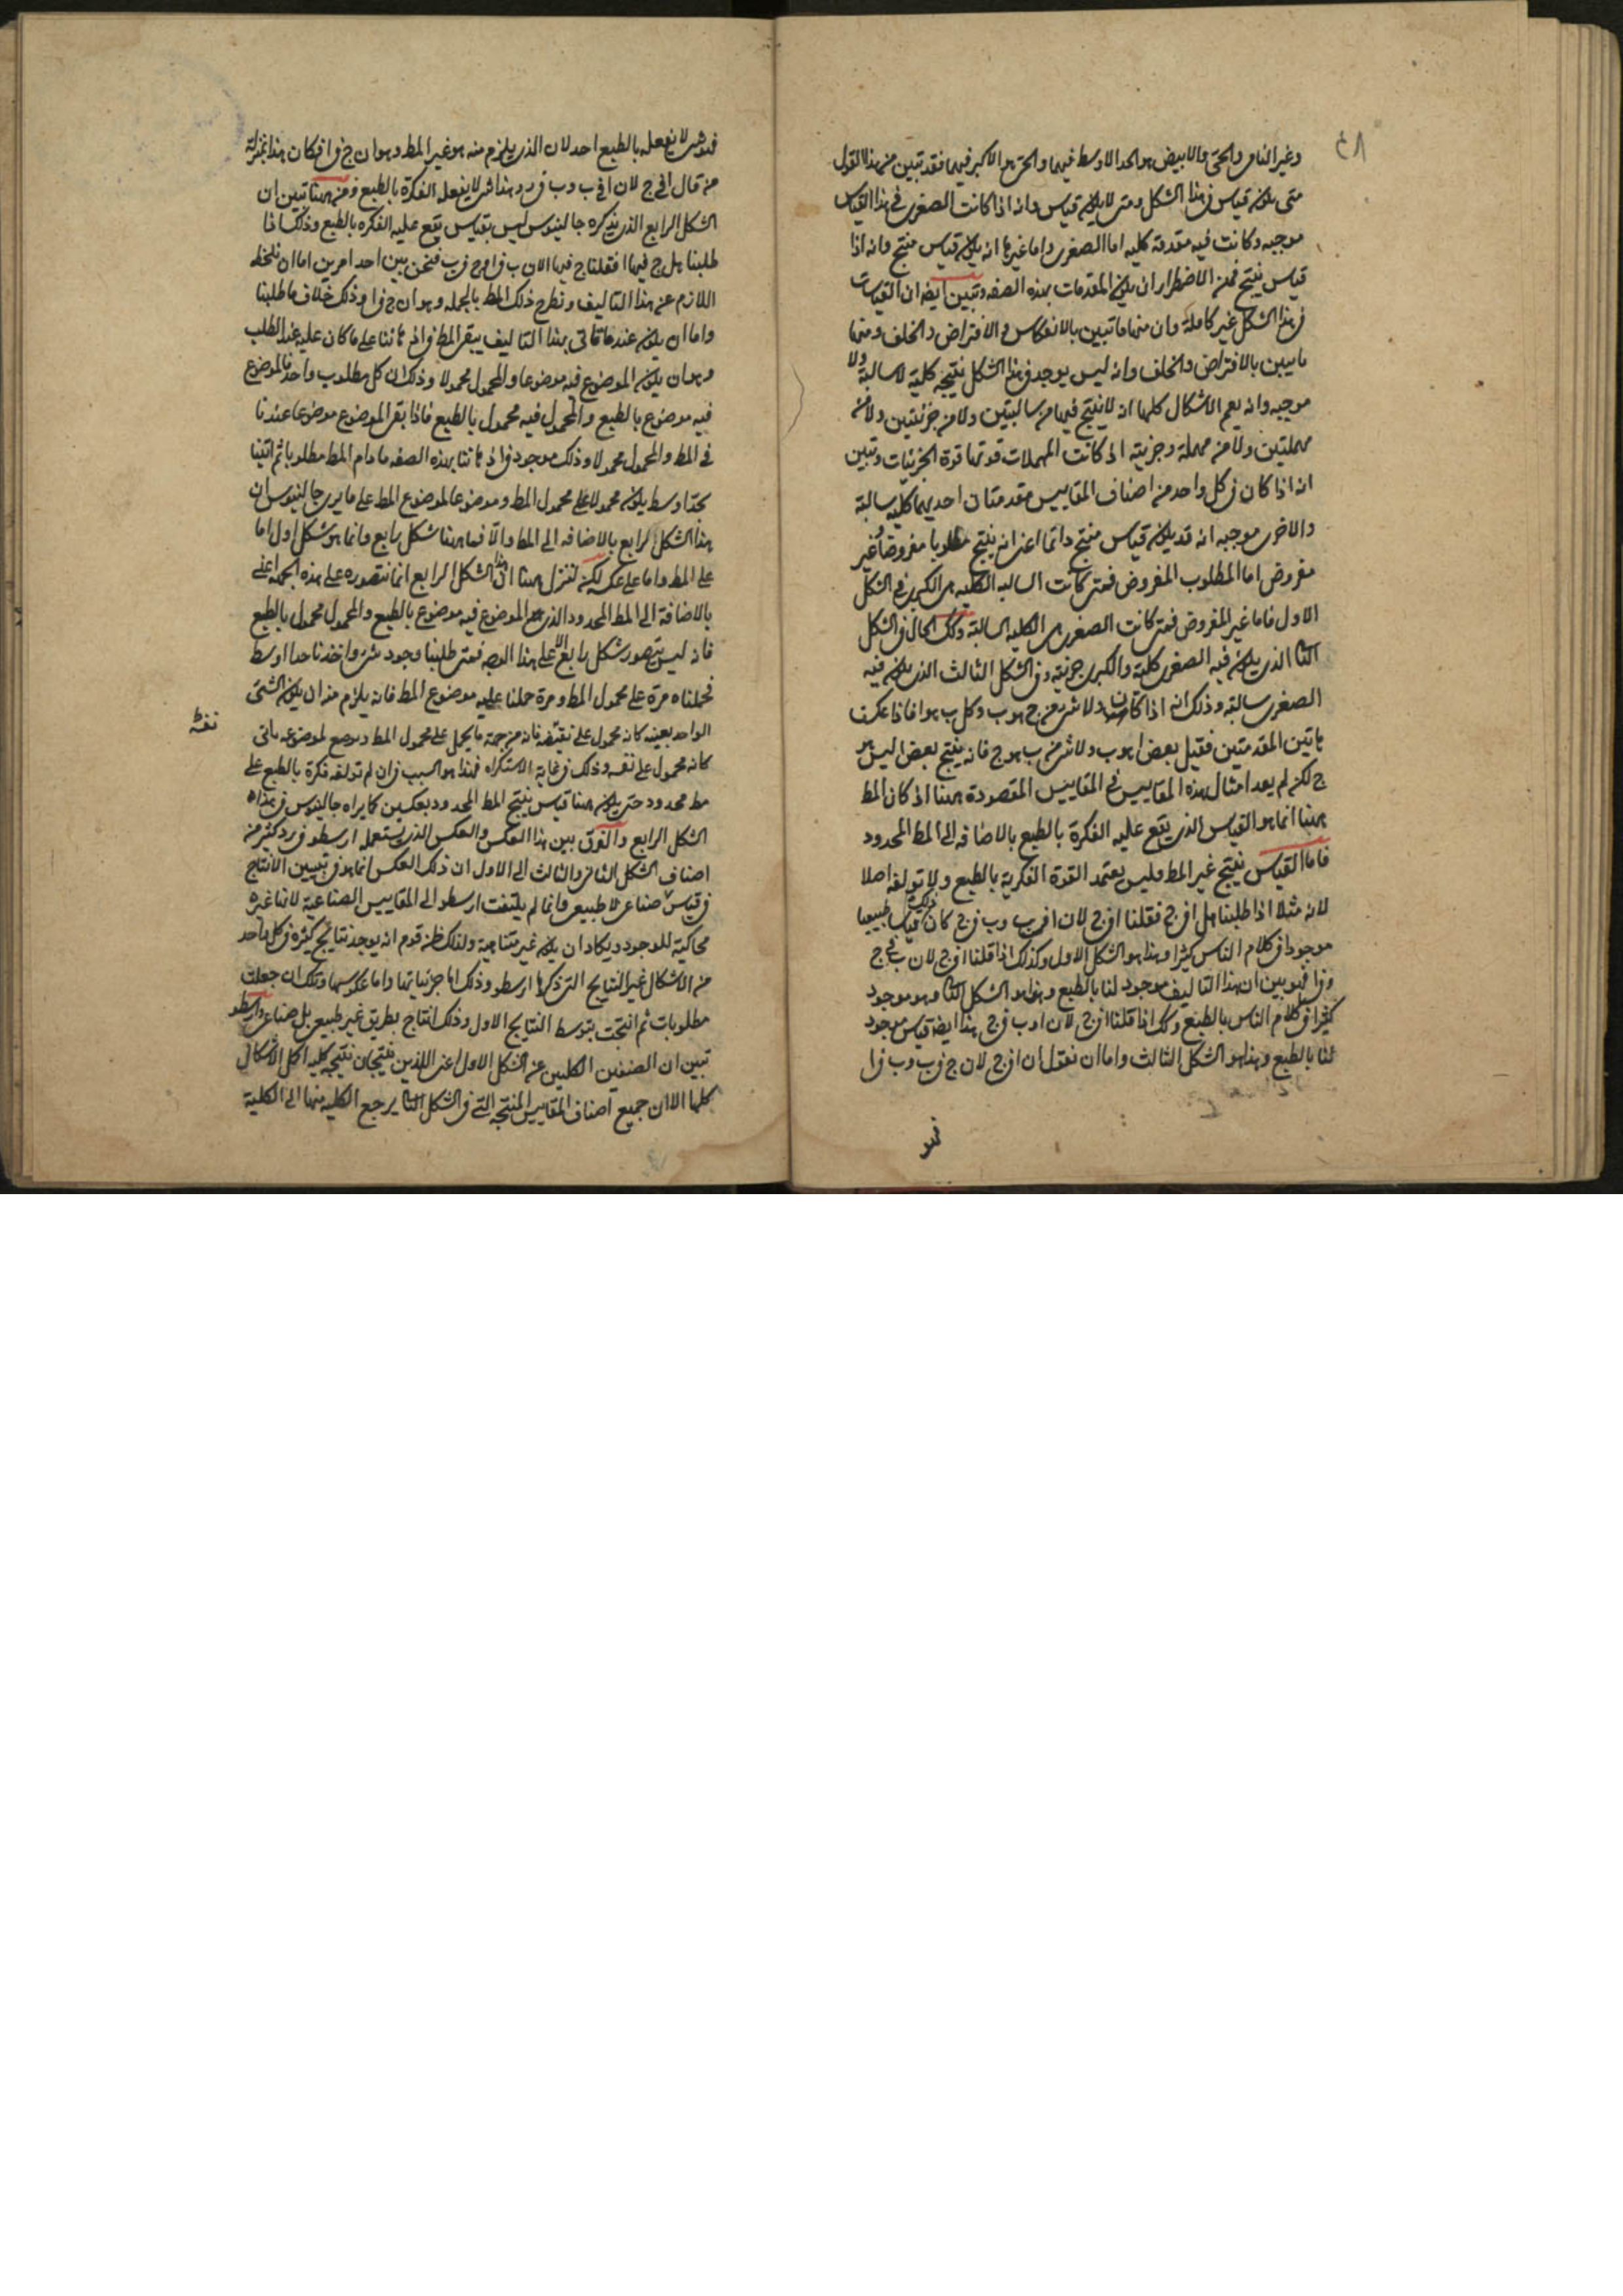 ٤٨
وغير الناس والحي والابيض هو الحد الاوسط فيهما والحي هو الاكبر فيهما فقد تبين من هذا القول
متى يكون قياس في هذا الشكل ومتى لا يكون قياس وانه اذا كانت الصغرى في هذا القياس
موجبه وكانت فيه مقدمة كليه اما الصغرى واما غيرها انه يكون قياس منتج وانه اذا
قياس ينتج فمن الاضطرار ان يكون المقدمات بهذه الصفه وتبين ايضه ان القياسات
في هذا الشكل غير كاملة وان منها ما تبين بالانعكاس والافتراض والخلف ومنها
ما يبين بالافتراض والخلف وانه ليس يوجد في هذا الشكل نتيجه كلية لا سالبة ولا
موجبه وانه يعم الاشكال كلها انه لا ينتج فيها من سالبتين ولا من جزئيتين ولا من
مهملتين ولا من مهملة وجزيية اذ كانت المهملات قوتها قوة الجزئيات وتبين
انه اذا كان في كل واحد من اصناف المقاييس مقدمتان احديهما كليه سالبة
والاخرى موجبه انه قد يكون قياس منتج دائما اعني ان ينتج مطلوبا مفروضا وغير
مفروض اما المطلوب المفروض فمتى كانت السالبه الكليه هى الكبرى في الشكل
الاول فاما غير المفروض فمتى كانت الصغرى هي الكليه السالبة وكذلك الحال في الشكل
الثا الذي يكون فيه الصغرى كلية والكبرى جزئية وفي الشكل الثالث الذي يكون فيه
الصغرى سالبة وذلك انه اذا كانت ولا شي من ج هو ب وكل ب هو ا فاذا عكست
هاتين المقدمتين فقيل بعض ا هو ب ولا شي من ب هو ج فانه ينتج بعض ا ليس هو
ج لكن لم يعد امثال هذه المقاييس في المقاييس المقصودة ههنا اذ كان المط
ههنا انما هو القياس الذي يقع عليه الفكرة بالطبع بالاضافه الى المط المحدود
فاما القياس ينتج غير المط وليس يعتمد القوة الفكرية بالطبع ولا تولفه اصلا
لانه مثلا اذا طلبنا هل ا في ج فقلنا ا في ج لان ا في ب وب في ج كان ذلك قياسا طبيعيا
موجودا في كلام الناس كثيرا وهذا هو الشكل الاول وكذلك اذا قلنا ا في ج لان ب في ج
وفي ا فهو بين ان هذا التاليف موجود لنا بالطبع وهذا هو الشكل الثا وهو موجود
كثيرا في كلام الناس بالطبع وكذلك اذا قلنا ا في ج لان ا و ب في ج هذا ايضه قياس موجود
لنا بالطبع وهذا هو الشكل الثالث واما ان نقول ان ا في ج لان ج في ب وب في ا
فهو
فهو شي لا يفعله بالطبع احد لان الذي يلزم منه هو غير المط وهو ان ج في ا فكان هذا بمنزلة
من قال ا في ج لان ا في ب وب في د وهذا شي لا يفعله الفكرة بالطبع ومن ههنا تبين ان
الشكل الرابع الذي يذكره جالينوس ليس بقياس تقع عليه الفكره بالطبع وذلك اذا
طلبنا هل ج فيها ا فقلنا ج فيها ا لان ب في ا و ج في ب فنحن بين احد امرين اما ان نلخظ
اللازم عن هذا التاليف ونطرح ذلك المط بالجمله وهو ان ج في ا وذلك خلاف ما طلبنا
واما ان يكون عندما تاتى بهذا التاليف يبقى المط في اذهاننا على ما كان عليه عند الطلب
وهو ان يكون الموضوع فيه موضوعا والمحمول محمولا وذلك ان كل مطلوب واحد فالموضوع
فيه موضوع بالطبع والمحمول فيه محمول بالطبع فاذا بقى الموضوع موضوعا عندنا
في المط والمحمول محمولا وذلك موجود في اذهاننا بهذه الصفه ما دام المط مطلوبا ثم اتينا
بحد اوسط يكون محمولا على محمول المط وموضوعا لموضوع المط على ما يرى جالينوس ان
هذا الشكل الرابع بالاضافه الى المط والا فما ههنا شكل رابع وانما هو شكل اول اما
على المط واما على عكسه لكن لننزل ههنا ان هذا الشكل الرابع انما نتصوره على هذه الجهه اعني
بالاضافة الى المط المحدود الذي هو الموضوع فيه موضوع بالطبع والمحمول محمول بالطبع
فانه ليس يتصور شكل رابع الا على هذا الوجه فمتى طلبنا وجود شي واخذنا حدا اوسط
فحملناه مرة على محمول المط ومرة حملنا عليه موضوع المط فانه يلزم منه ان يكون الشي
الواحد بعينه كانه محمول على نفسه فانه من جهة ما يحمل على محمول المط لموضوعه ياتى
كانه محمول على نفسه وذلك في غاية الاستكراه فهذا هو السبب في ان لم تولفه فكرة بالطبع على
مط محدود حتى يكون ههنا قياس ينتج المط المحدود بعكسين كما يراه جالينوس في هذا
الشكل الرابع والفرق بين هذا العكس والعكس الذي يستعمله ارسطو في رد كثير من
اصناف الشكل الثاني والثالث الى الاول ان ذلك العكس انما هو في تبيين الانتاج
في قياس صناعي لا طبيعي وانما لم يلتفت ارسطو الى المقاييس الصناعية لانها غيره
محاكية للموجود ويكاد ان يكون غير متناهية ولذلك ظن قوم انه يوجد نتايج كثيره في كل واحد
من الاشكال غير النتايج التي ذكرها ارسطو وذلك اما جزئياتها واما عكوسها وتلك ان جعلت
مطلوبات ثم انتجت بتوسط النتايج الاول وذلك انتاج بطريق غير طبيعي بل صناعي وارسطو
تبين ان الصنفين الكليين من الشكل الاول اعني اللذين ينتجان نتيجه كليه اكمل الاشكال
كلها الا ان جميع اصناف المقاييس المنتجه التي في الشكل الثا يرجع الكليه منها الى الكلية